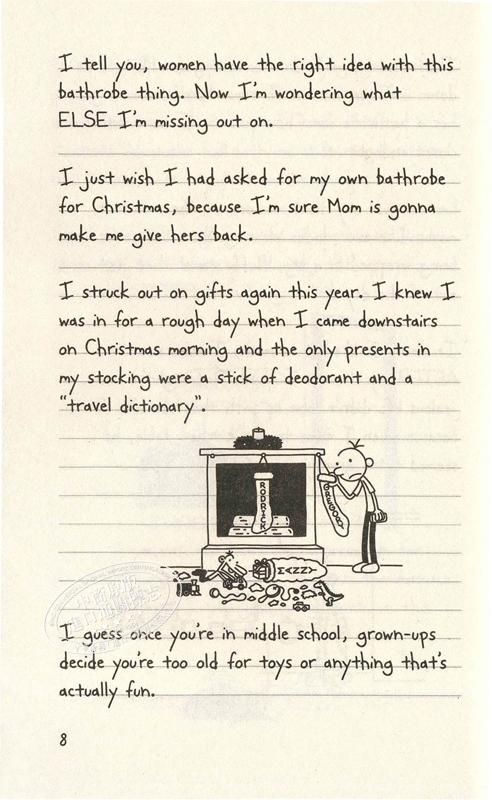 I tell you, women have the right idea with this
bathrobe thing. Now I'm wondering what
ELSE I'm missing out on.
I just wish I had asked for my own bathrobe
for Christmas, because I'm sure Mom is gonna
make me give hers back.
I struck out on gifts again this year. I knew I
was in for a rough day when I came downstairs
on Christmas morning and the only presents in
my stocking were a stick of deodorant and a
"travel dictionary".
RODRICK
GREGORY
MANNY
I guess once you're in middle school, grown-ups
decide you're too old for toys or anything that's
actually fun.
8